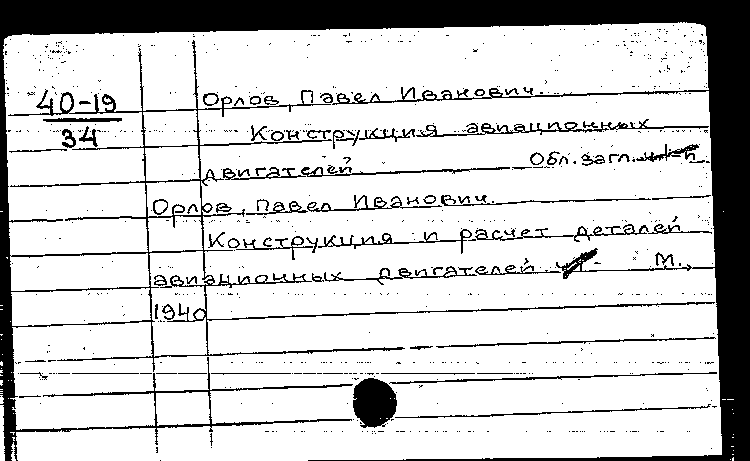 40-19
34
Орлов, Павел Иванович.
Конструкция авиационных
двигателей. Обл. загл.
Орлов, Павел Иванович.
Конструкция и расчет деталей
авиационных двигателей М.,
1940